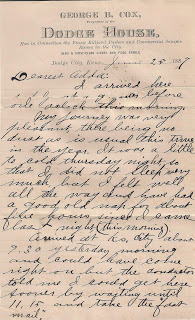 GEORGE B. COX,
PROPRIETOR OF THE
DODGE HOUSE,
Now in Connection the Finest Billiard Parlors and Commercial Sample
Rooms in the City.
Dodge City, Kans., June 25 1887
Dearest Adda:
I arrived here
before
one o'clock this morning.
My journey was very
pleasant there being no
dust as is usual this time
in the year. It was a little
to cold thursday night so
that I did not sleep very
much but I felt well
all the way and had
a good old nap of about
five hours since I came
last night (this morning)
Arrived at K.C. City about
7:30 yesterday morning
and could have come
right on but the conductor
told me I could get here
sooner by waiting until
11.15 and take the fast
mail.